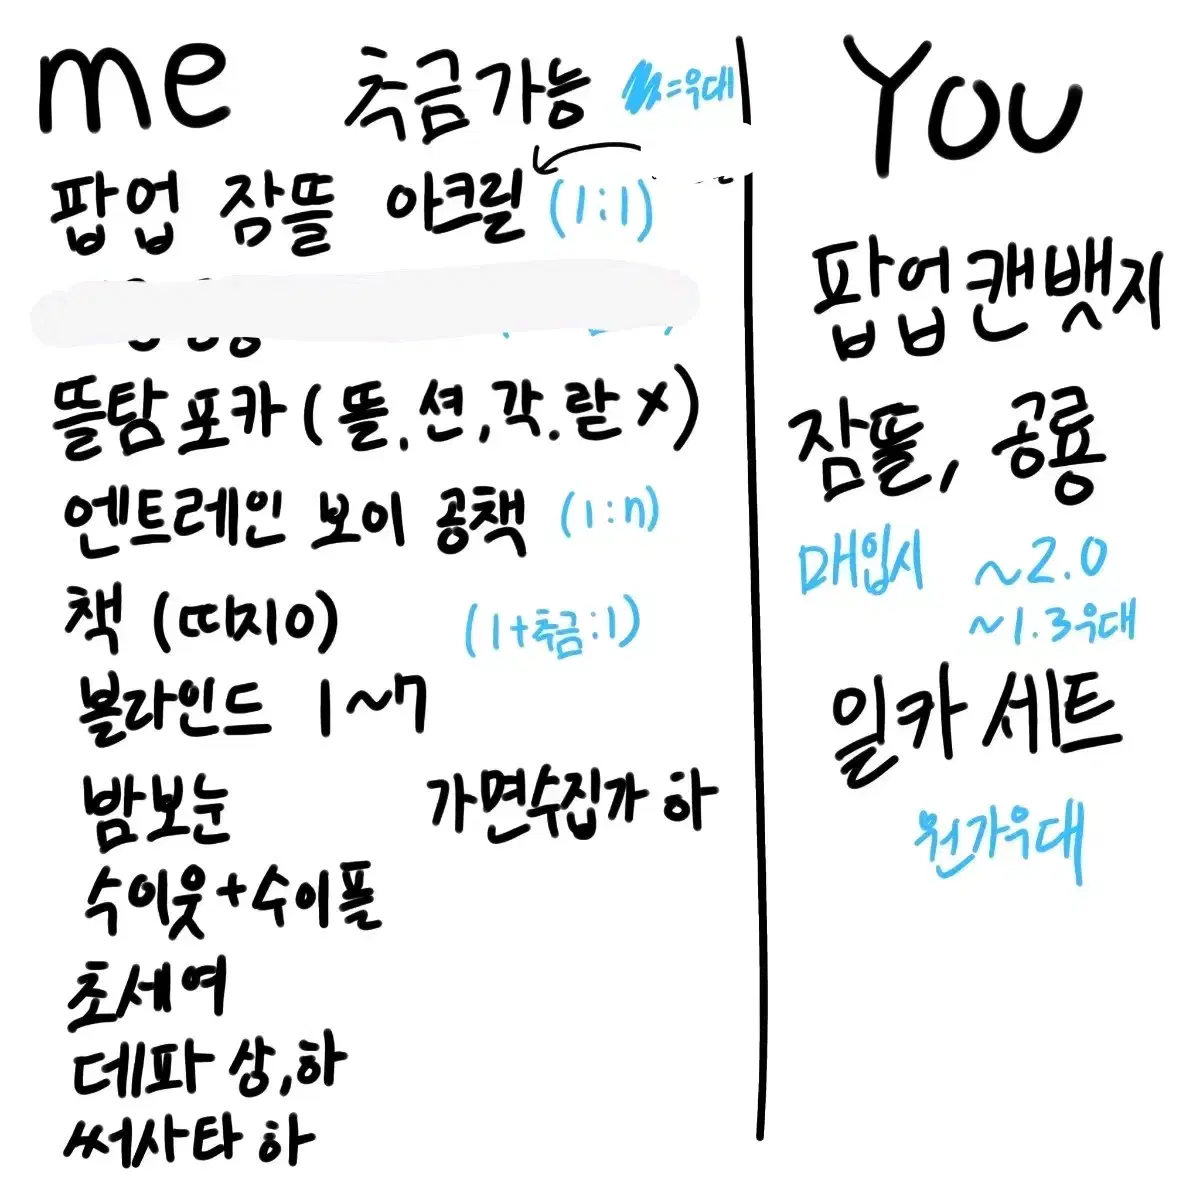 me 추금가능 =우대
팝업 잠뜰 아크릴 (1:1)
뜰탐 포카 (똘.션,각.랃 X)
엔트레인 보이 공책 (1:n)
책 (띠지O) (1+추금:1)
블라인드 1~7
밤보눈 가면수집가 하
수이웃+수이플
초세여
데파 상,하
써사타 하
You
팝업캔뱃지
잠뜰, 공룡
매입시 ~2.0
~1.3우대
일카 세트
원가우대